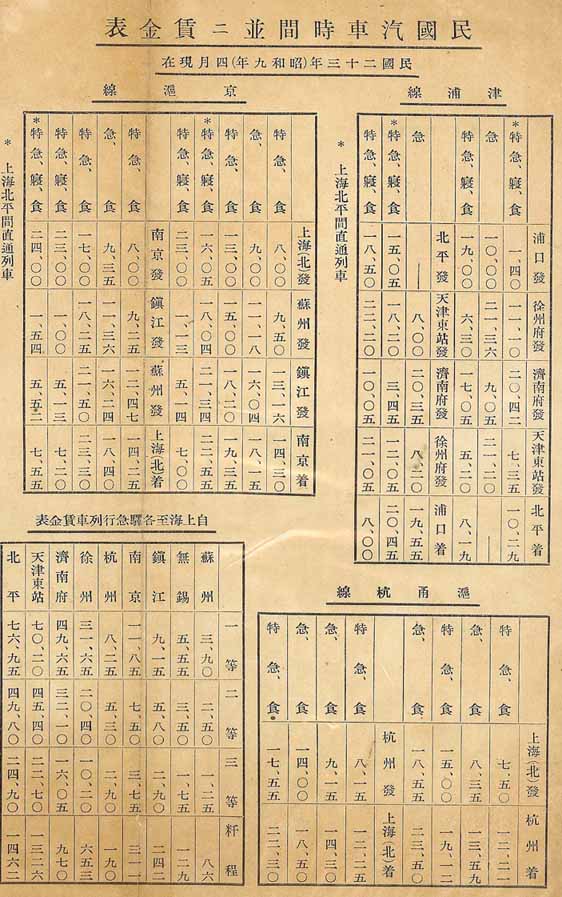 民國汽車時間並ニ賃金表
民國二十三年(昭和九年)四月現在
津浦線
浦口發 徐州府發 濟南府發 天津東站發 北平着
*特急、寢、食 二〇、四二 七、三五 一〇、二九
急 一〇、〇〇 二一、三六 九、〇五 二一、二〇 ―
特急、寢、食 一九、〇〇 六、三〇 一七、〇五 五、二〇 八、一九
北平發 天津東站發 濟南府發 徐州府發 浦口着
急 ― 八、〇〇 二〇、三五 八、二〇 一九、五五
*特急、寢、食 一五、〇五 一八、一〇 三、四五 一二、〇五 二〇、四五
特急、寢、食 一八、五〇 二二、二〇 一〇、〇五 二一、〇五 八、〇〇
* 上海北平間直通列車
京滬線
上海(北)發 蘇州發 鎭江發 南京着
特急、食 八、〇〇 九、五〇 一三、一六 一四、三〇
急、食 九、〇〇 一一、一八 一六、〇四 一八、一五
特急、食 一三、〇〇 一五、〇〇 一八、二〇 一九、三五
*特急、寢、食 一六、〇五 一八、〇四 二一、三四 二二、五五
特急、寢、食 二三、〇〇 一、一三 五、一四 七、〇〇
南京發 鎭江發 蘇州發 上海(北)着
特急、食 八、〇〇 九、二五 一二、四七 一四、二五
急、食 九、三五 一一、三六 一六、二四 一八、四〇
特急、食 一七、〇〇 一八、二五 二一、五〇 二三、三〇
特急、寢、食 二三、〇〇 一、〇〇 五、一三 七、二〇
*特急、寢、食 二四、〇〇 一、五四 五、五二 七、五五
* 上海北平間直通列車
滬甬杭線
上海(北)發 杭州着
特急、食 七、五〇 一二、二一
急、食 八、三五 一三、五九
特急、食 一五、〇〇 一九、一二
急、食 一八、五五 二三、五〇
杭州發 上海(北)着
特急、食 八、一五
急、食 九、五〇 一四、三〇
急、食 一四、〇〇 一八、五〇
特急、食 一七、五五 二二、三〇
自上海至各驛急行列車賃金表
一等 二等 三等 粁程
蘇州 三、九〇 二、五〇 一、二五 八六
無錫 五、五五 三、五〇 一、七五 一二八
鎭江 九、一五 五、八〇 二、九〇 二四二
南京 一一、八五 七、五〇 三、七五 三一一
杭州 八、二五 五、三〇 二、九〇 一九〇
徐州 三一、六五 二〇、四〇 一〇、二〇 六五三
濟南府 四九、六五 三二、一〇 一六、〇五 九七〇
天津東站 七〇、二〇 四五、四〇 二二、七〇 一三二六
北平 七六、九五 四九、八〇 二四、九〇 一四六二